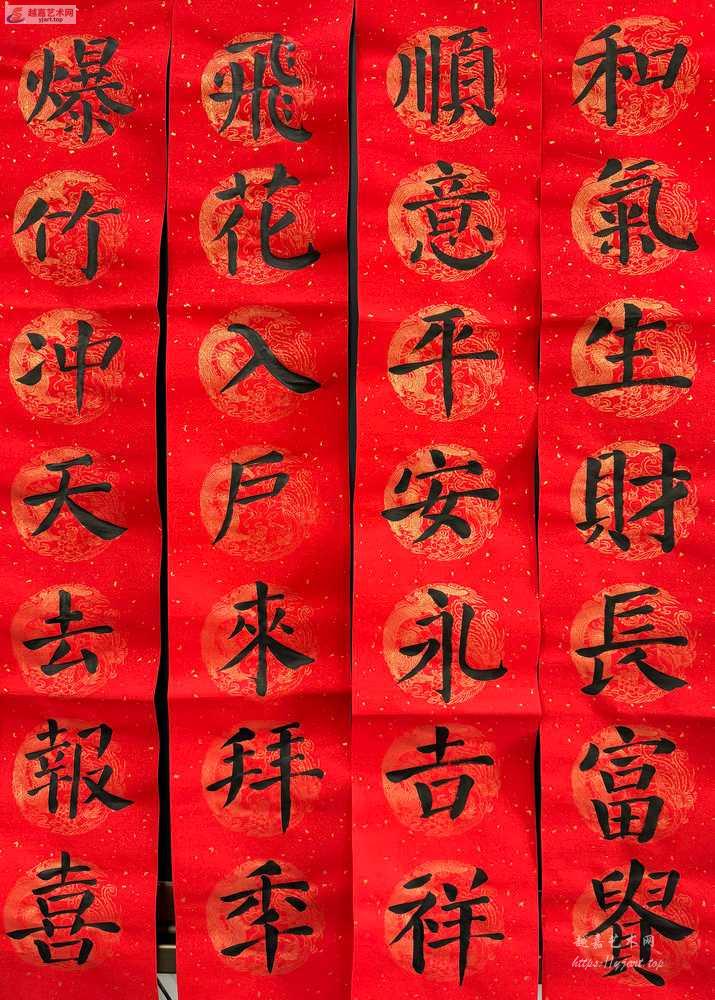 和氣生財長富貴
順意平安永吉祥
飛花入戶來拜年
爆竹冲天去報喜
越嘉艺术网
yjart.top
越嘉艺术网
https://yjart.top